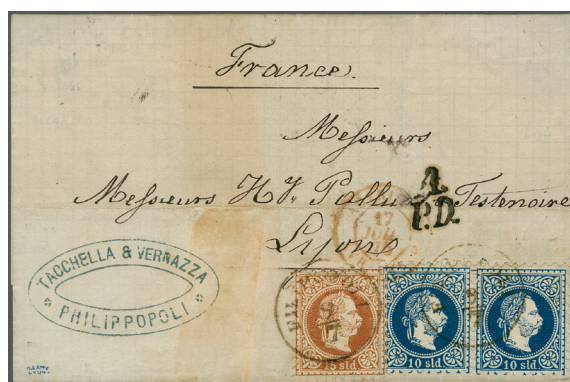 France.
Messieurs
A.
Messieurs Hy. Pallu Testenoire
P.D.
17
Lyons
TACCHELLA & VERNAZZA
PHILIPPOPOLI
15 sld. 10 sld. 10 sld.